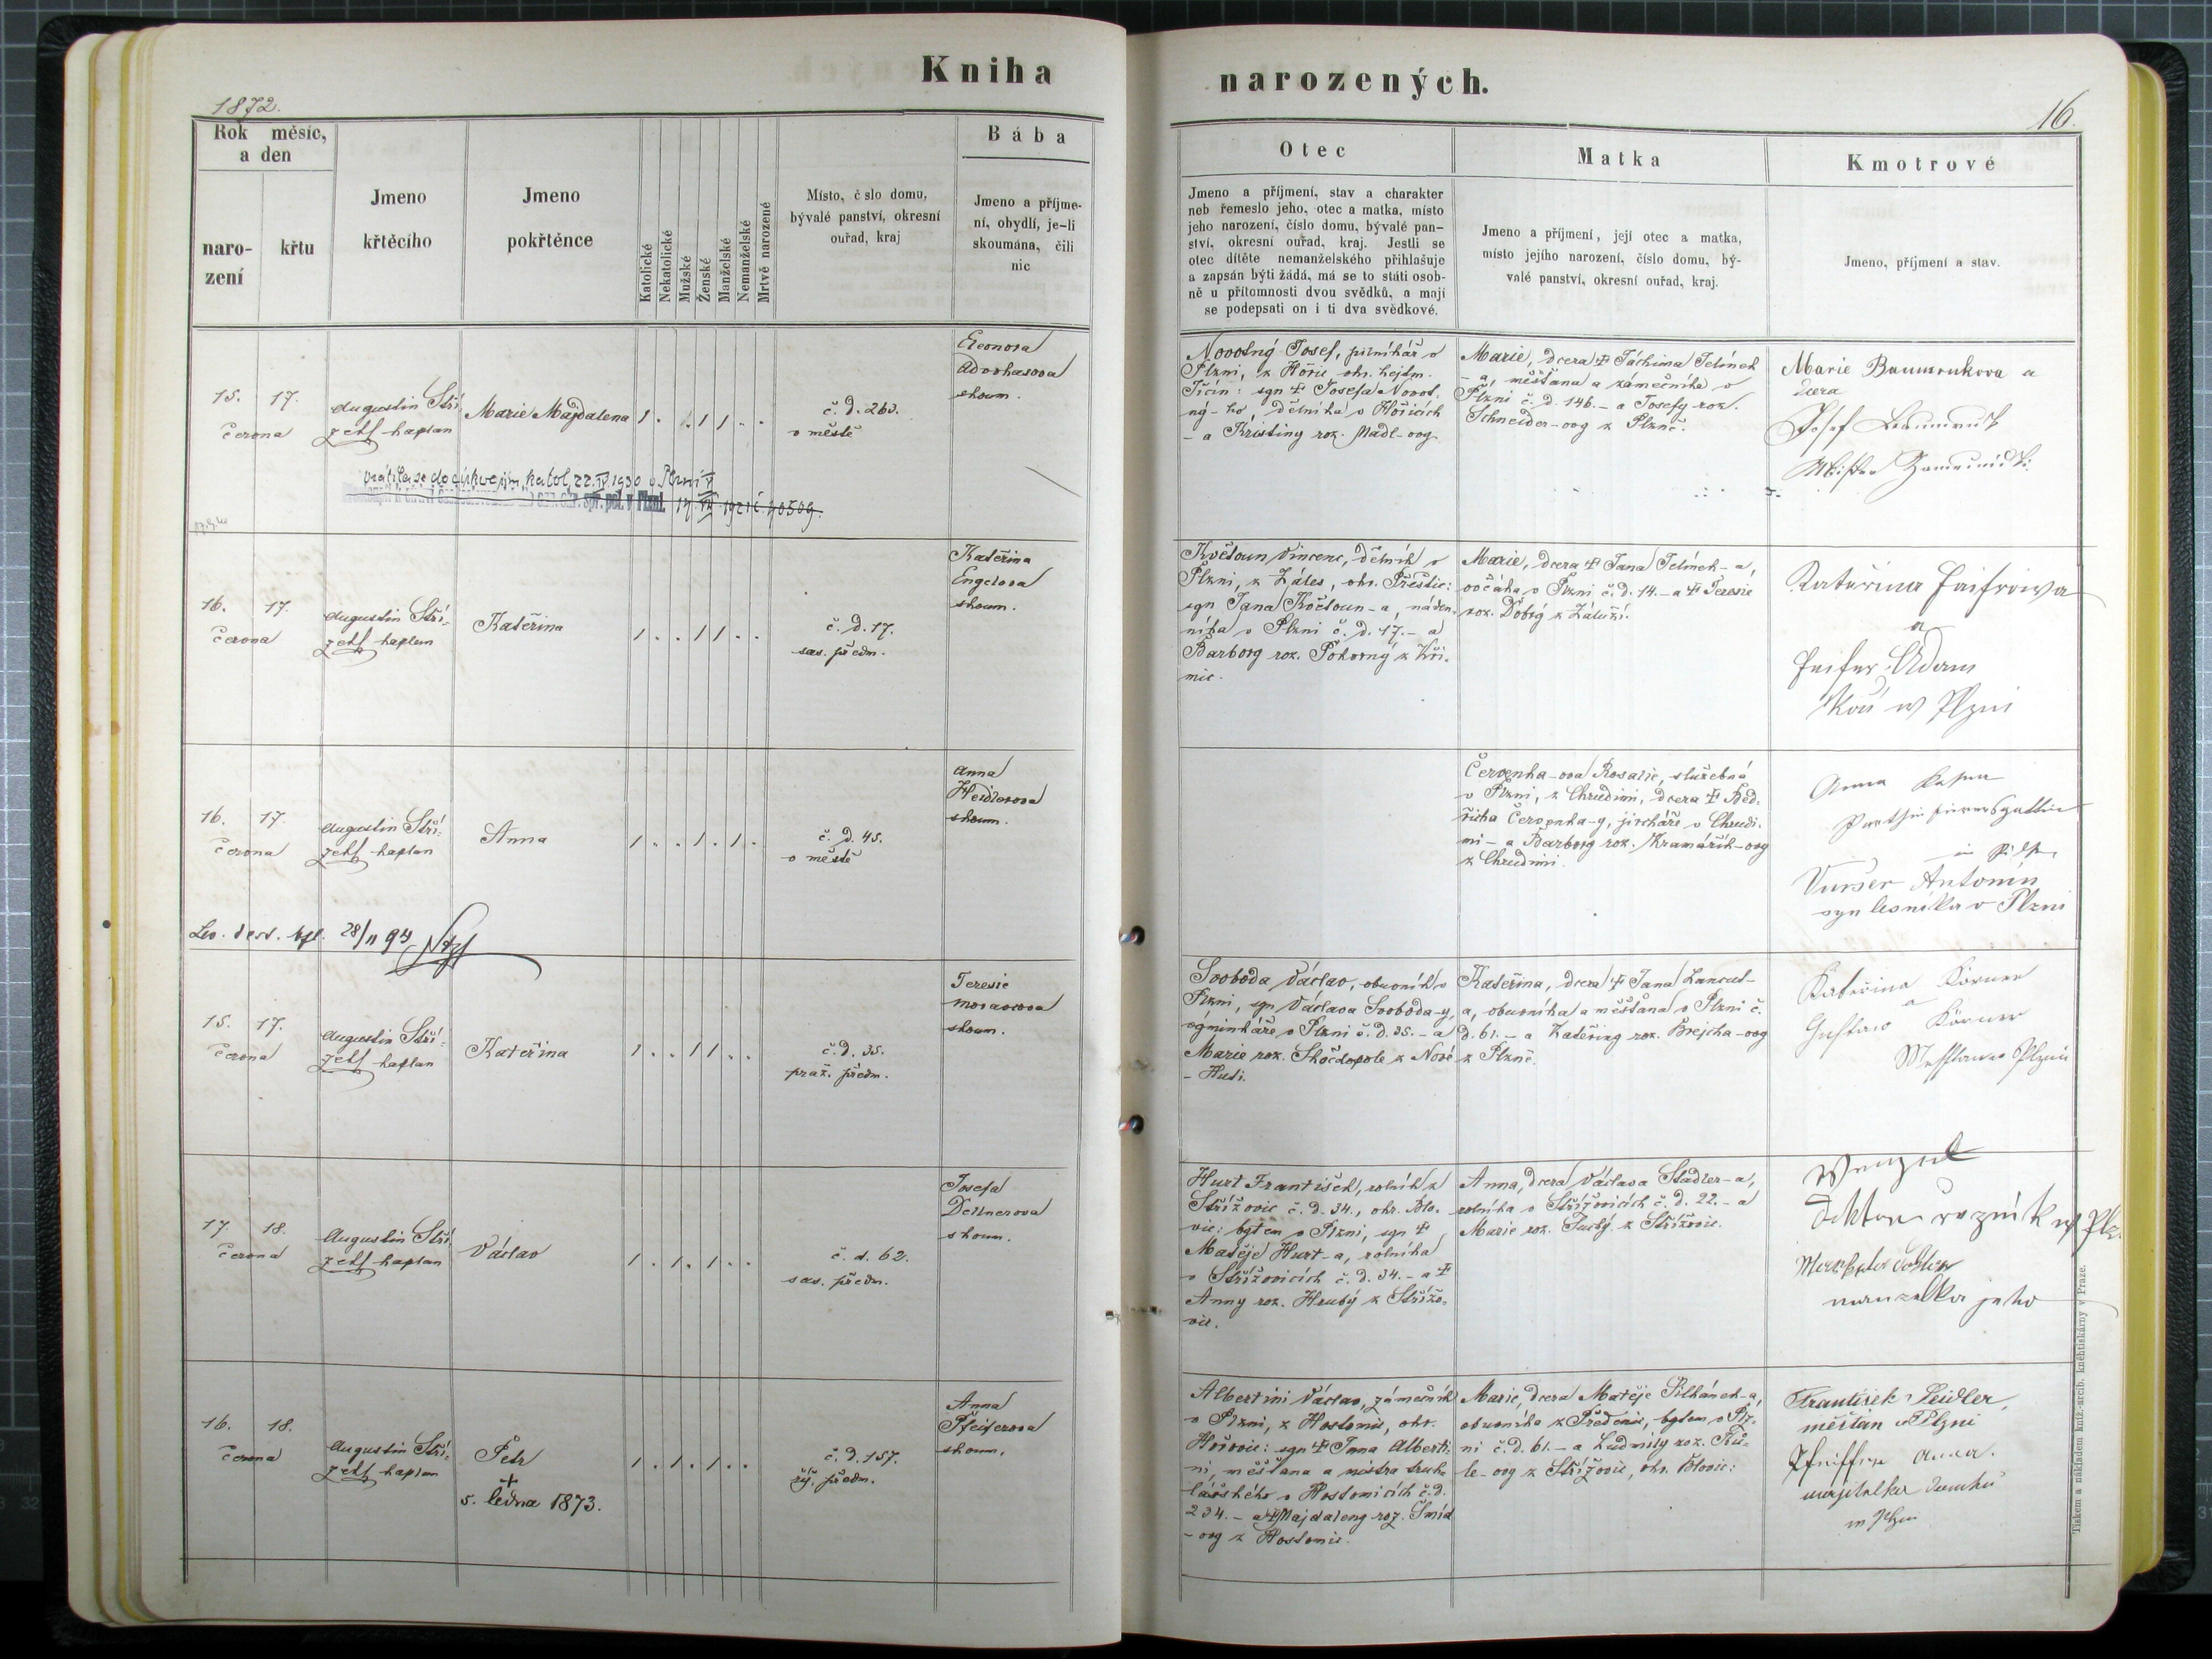 Kniha
narozených.
1872.
16.
Rok měsíc,
a den
naro-
zení
křtu
Jmeno
křtěcího
Jmeno
pokřtěnce
Katolické
Nekatolické
Mužské
Ženské
Manželské
Nemanželské
Mrtvě narozené
Místo, č slo domu,
bývalé panství, okresní
ouřad, kraj
Bába
Jmeno a příjme-
ní, obydlí, je-li
skoumána, čili
nic
Otec
Jmeno a příjmení, stav a charakter
neb řemeslo jeho, otec a matka, místo
jeho narození, číslo domu, bývalé pan-
ství, okresní ouřad, kraj. Jestli se
otec dítěte nemanželského přihlašuje
a zapsán býti žádá, má se to státi osob-
ně u přítomnosti dvou svědků, a mají
se podepsati on i ti dva svědkové.
Matka
Jmeno a příjmení, její otec a matka,
místo jejího narození, číslo domu, bý-
valé panství, okresní ouřad, kraj.
Kmotrové
Jmeno, příjmení a stav.
15. 17.
června
Augustin Stří-
zek kaplan
Marie Majdalena
č. d. 263.
v městě
Eleonora
skoum.
Novotný Josef, pilníkář v
Plzni, z Hořic okr. hejtm.
Jičín: syn † Josefa Novot-
ný-ho, dělníka v Hořicích
- a Kristiny roz. Mádl-ovy
Marie, dcera † Jáchima Jelínek
- a, měšťana a zámečníka v
Plzni č. d. 146. - a Josefy roz.
Schneider-ovy z Plzně.
Marie Baumrukova a
dcera
Josef Baumruk
vrátila se do církve řím. katol. 22. IV. 1930 v Plzni
spr. pol. v Plzni. 14. 1921 č. 40509.
16. 17.
června
Augustin Stří-
zek kaplan
Kateřina
č. d. 17.
sas. předm.
Kateřina
Engelova
skoum.
Květoun Vincenc, dělník v
Plzni, z Záles, okr. Přeštic:
syn Jana Květoun-a, náden-
níka v Plzni č. d. 17. - a
Barbory roz. Pokorný z Kři-
mic.
Marie, dcera † Jana Jelínek-a,
ovčáka v Plzni č. d. 14. - a † Teresie
roz. Dobrý z Záluží.
Kateřina
a
Adam
w Plzni
16. 17.
června
Augustin Stří-
zek kaplan
Anna
č. d. 45.
v městě
Anna
Heidlerova
skoum.
Červenka-ova Rosalie, služebná
v Plzni, z Chrudimi, dcera † Bed-
řicha Červenka-y, jircháře v Chrudi-
mi - a Barbory roz. Kramářík-ovy
z Chrudimi.
Anna
Antonín
syn v Plzni
28/11 94
15. 17.
června
Augustin Stří-
zek kaplan
Kateřina
č. d. 35.
praž. předm.
Teresie
Moravcova
skoum.
Svoboda Václav, obuvník v
Plzni, syn Václava Svoboda-y,
výminkáře v Plzni č. d. 35. - a
Marie roz. Skočdopole z Nové
- Huti.
Kateřina, dcera † Jana Luncut-
a, obuvníka a měšťana v Plzni č.
d. 61. - a Kateřiny roz. Brejcha-ovy
z Plzně.
Kateřina Körner
a
Gustav Körner
17. 18.
června
Augustin Stří-
zek kaplan
Václav
č. d. 62.
sas. předm.
Josefa
Dellnerova
skoum.
Hurt František, rolník z
Střížovic č. d. 34., okr. Blo-
vic: bytem v Plzni, syn †
Matěje Hurt-a, rolníka
v Střížovicích č. d. 34. - a †
Anny roz. Hrubý z Střížo-
vic.
Anna, dcera Václava Stadler-a,
rolníka v Střížovicích č. d. 22. - a
Marie roz. Suchý z Střížovic.
Wenzel
manzelka jeho
16. 18.
června
Augustin Stří-
zek kaplan
Petr
+
5. ledna 1873.
č. d. 157.
říš. předm.
Anna
Pfeiferova
skoum.
Albertini Václav, zámečník
v Plzni, z Hostomic, okr.
Hořovic: syn † Jana Alberti-
ni, měšťana a mistra truh-
lářského v Hostomicích č. d.
234. - a † Majdaleny roz. Šmíd
- ovy z Hostomic.
Marie, dcera Matěje Pilhánek-a,
obuvníka z Předenic, bytem v Plz-
ni č. d. 61. - a Ludmily roz.
- ovy z Střížovic, okr. Blovic:
František Seidler,
měštan v Plzni
Anna.
majitelka domku
Tiskem a nákladem kníž.-arcib. knihtiskárny v Praze.